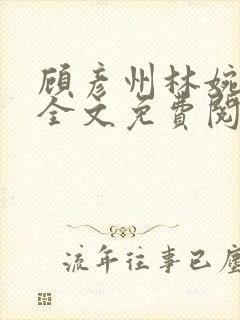 顾彦州林婉
全文免費閱
流年往事已塵